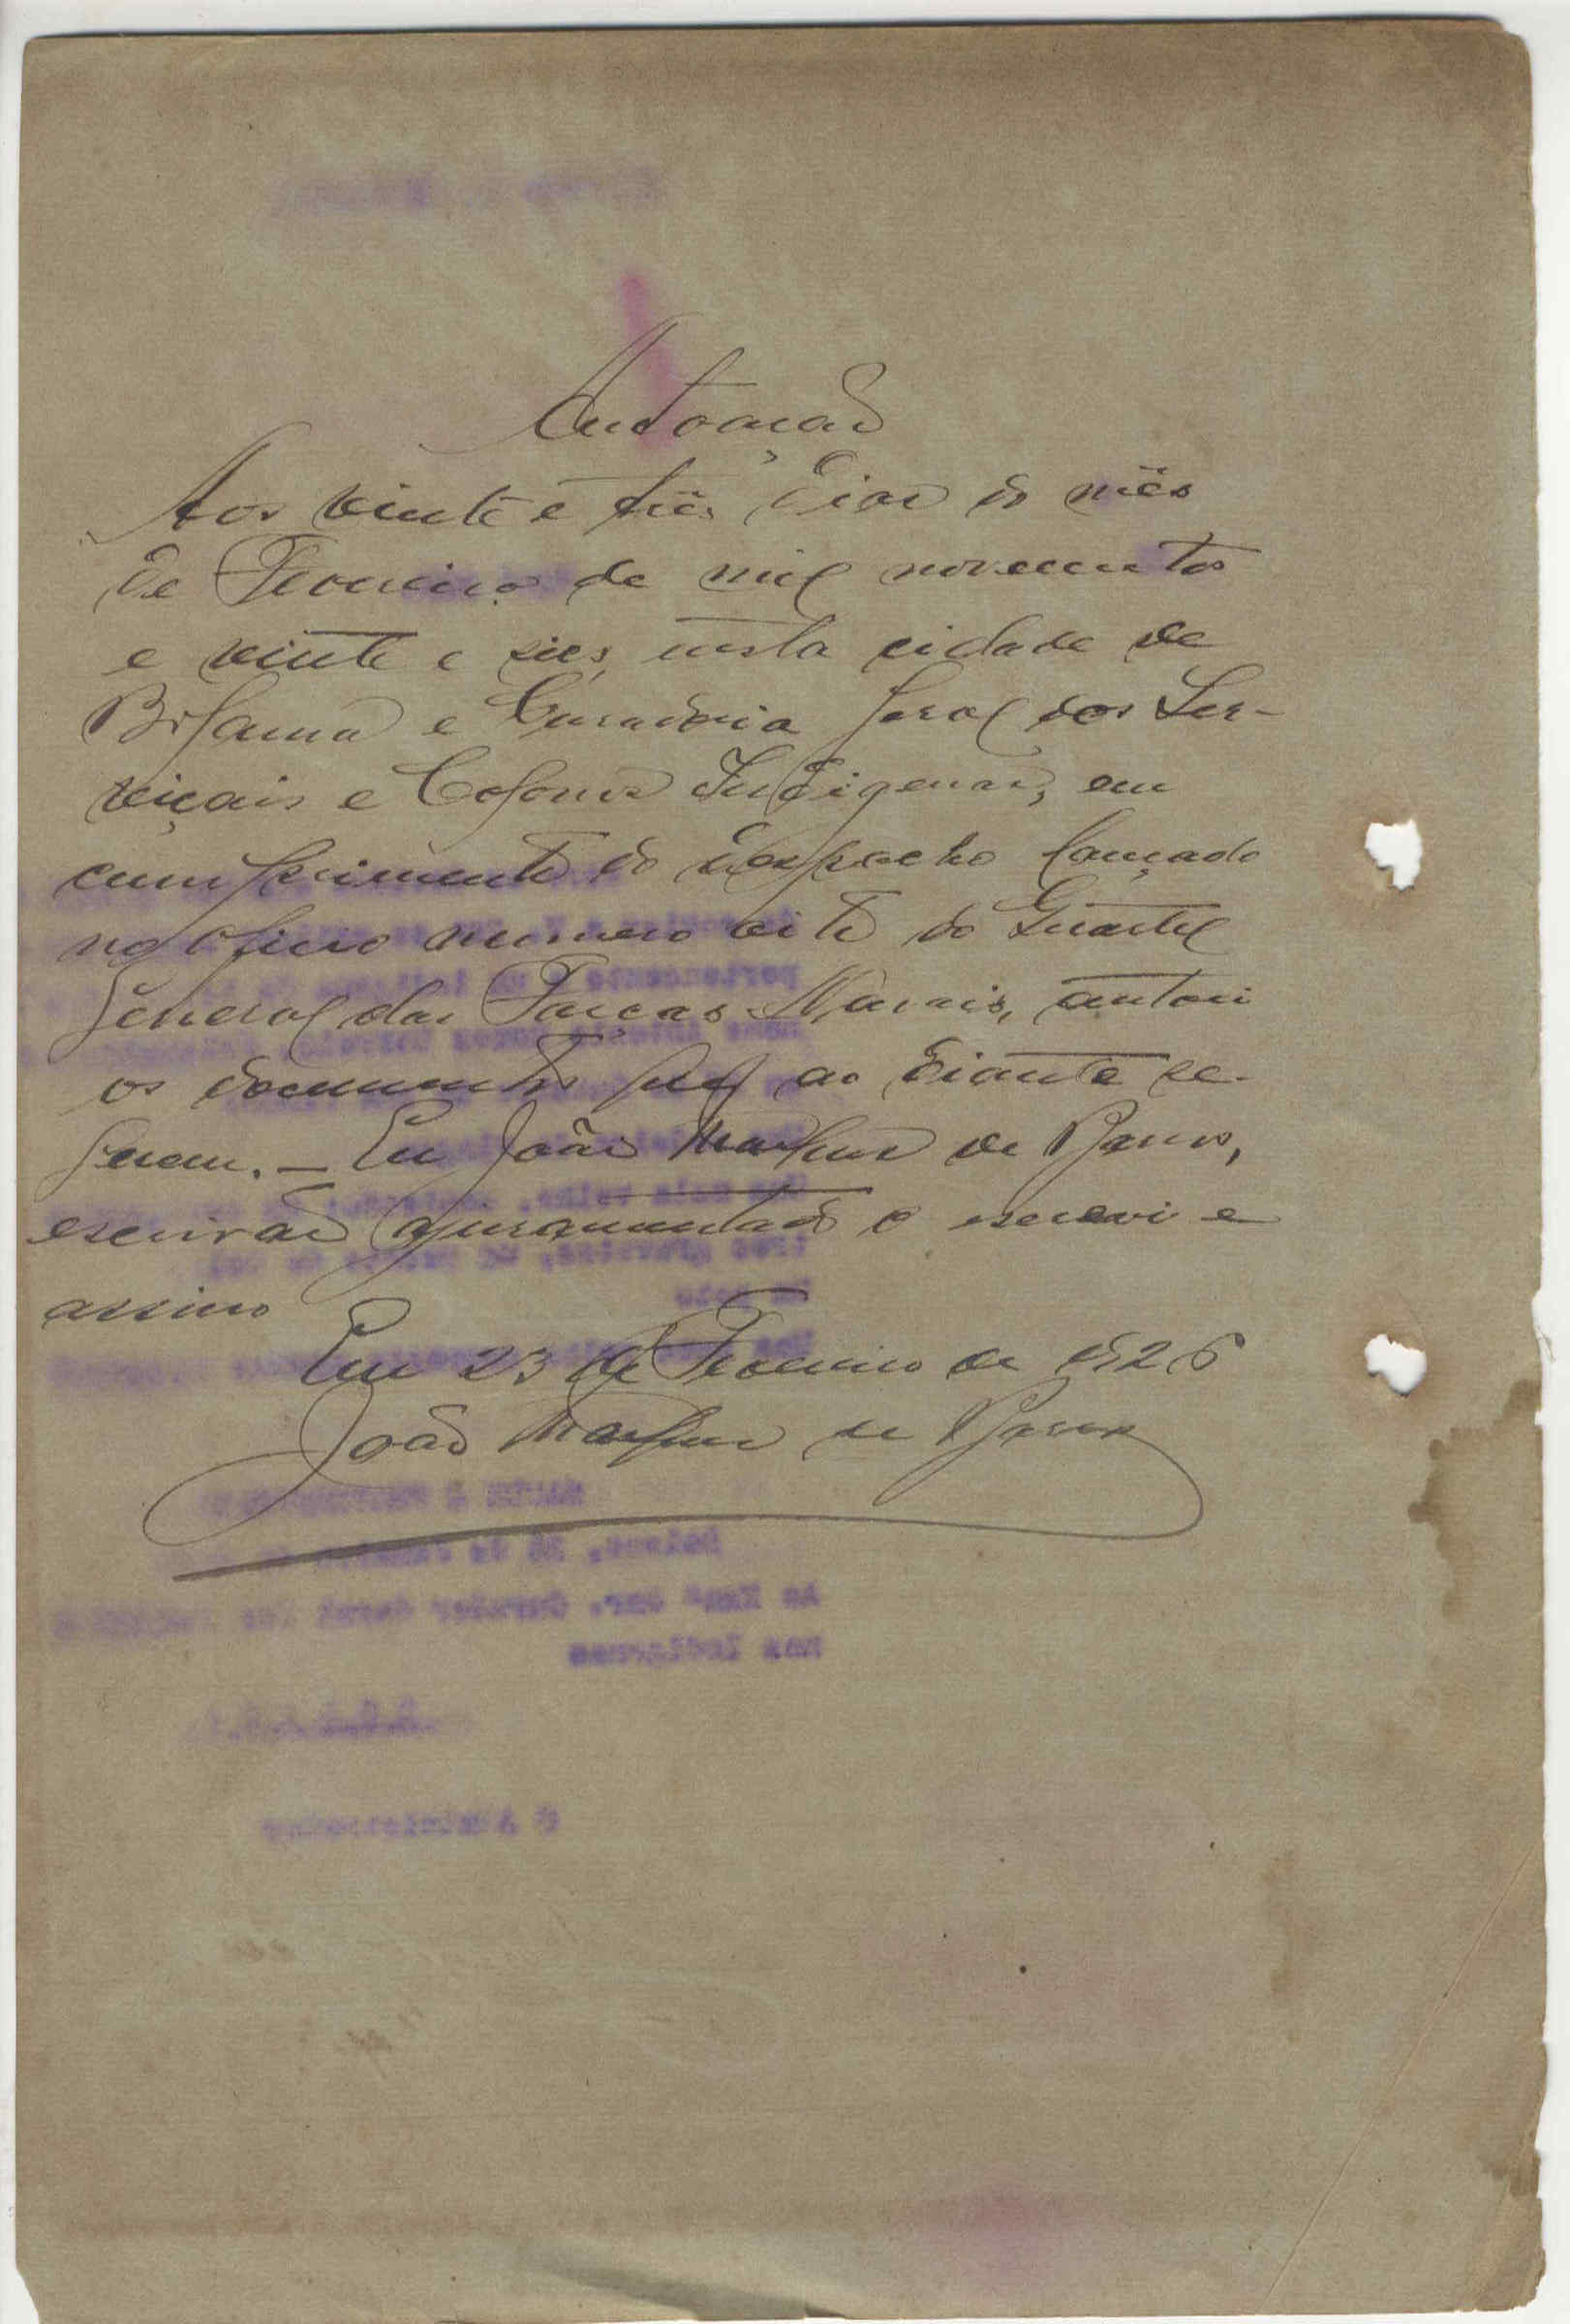 Autoação
Aos vinte e três dias do mês
de Fevereiro de mil novecentos
e vinte e seis, nesta cidade de
Bolama e Curadoria Geral dos Ser-
viçais e Colonos Indigenas, em
cumprimento do despacho lançado
no oficio numero oito do Quartel
General das Forças Navais, autoei
os documentos que ao diante se-
guem. — Eu João de Barros,
escrivão ajuramentado o escrevi e
assino
Em 23 de Fevereiro de 1926
João de Barros